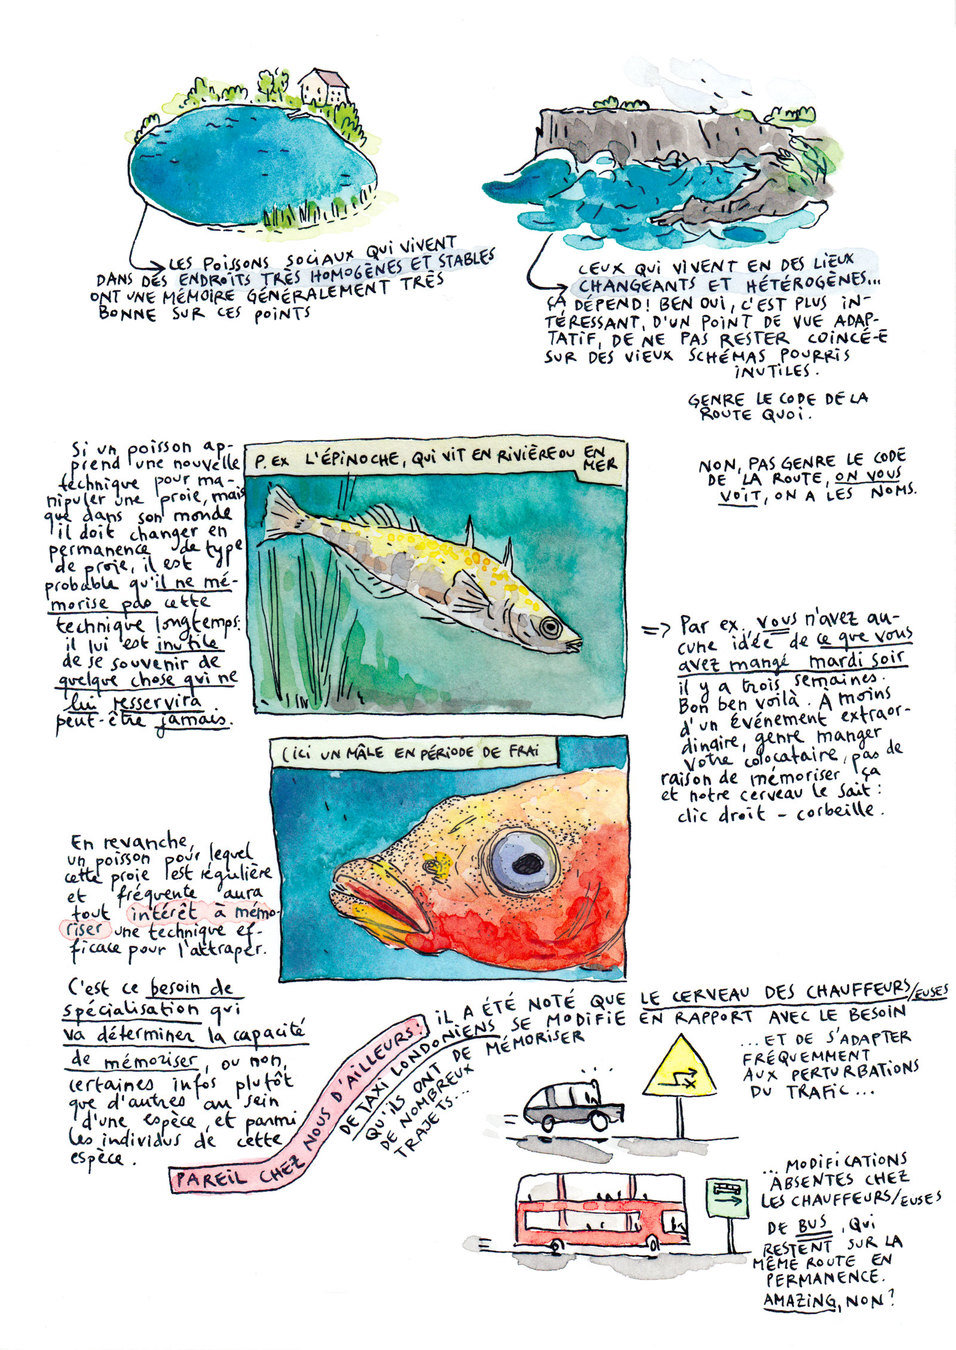 LES POISSONS SOCIAUX QUI VIVENT
DANS DES ENDROITS TRÈS HOMOGÈNES ET STABLES
ONT UNE MÉMOIRE GÉNÉRALEMENT TRÈS
BONNE SUR CES POINTS
CEUX QUI VIVENT EN DES LIEUX
CHANGEANTS ET HÉTÉROGÈNES...
ÇA DÉPEND! BEN OUI, C'EST PLUS IN-
TÉRESSANT, D'UN POINT DE VUE ADAP-
TATIF, DE NE PAS RESTER COINCÉ-E
SUR DES VIEUX SCHÉMAS POURRIS
INUTILES.
GENRE LE CODE DE LA
ROUTE QUOI.
NON, PAS GENRE LE CODE
DE LA ROUTE, ON VOUS
VOIT, ON A LES NOMS.
Si un poisson ap-
prend une nouvelle
technique pour ma-
nipuler une proie, mais
que dans son monde
il doit changer en
permanence de type
de proie, il est
probable qu'il ne mé-
morise pas cette
technique longtemps:
il lui est inutile
de se souvenir de
quelque chose qui ne
lui resservira
peut-être jamais.
P. EX L'ÉPINOCHE, QUI VIT EN RIVIÈRE OU EN
MER
=> Par ex. vous n'avez au-
cune idée de ce que vous
avez mangé mardi soir
il y a trois semaines.
Bon ben voilà. À moins
d'un événement extraor-
dinaire, genre manger
votre colocataire, pas de
raison de mémoriser ça
et notre cerveau le sait :
clic droit - corbeille.
(ICI UN MÂLE EN PÉRIODE DE FRAI
En revanche,
un poisson pour lequel
cette proie est régulière
et fréquente aura
tout intérêt à mémo-
riser une technique ef-
ficace pour l'attraper.
C'est ce besoin de
spécialisation qui
va déterminer la capacité
de mémoriser, ou non,
certaines infos plutôt
que d'autres au sein
d'une espèce, et parmi
les individus de cette
espèce.
PAREIL CHEZ NOUS D'AILLEURS:
IL A ÉTÉ NOTÉ QUE LE CERVEAU DES CHAUFFEURS/EUSES
DE TAXI LONDONIENS SE MODIFIE EN RAPPORT AVEC LE BESOIN
QU'ILS ONT DE MÉMORISER
DE NOMBREUX
TRAJETS...
...ET DE S'ADAPTER
FRÉQUEMMENT
AUX PERTURBATIONS
DU TRAFIC...
...MODIFICATIONS
ABSENTES CHEZ
LES CHAUFFEURS/EUSES
DE BUS, QUI
RESTENT SUR LA
MÊME ROUTE EN
PERMANENCE.
AMAZING, NON?